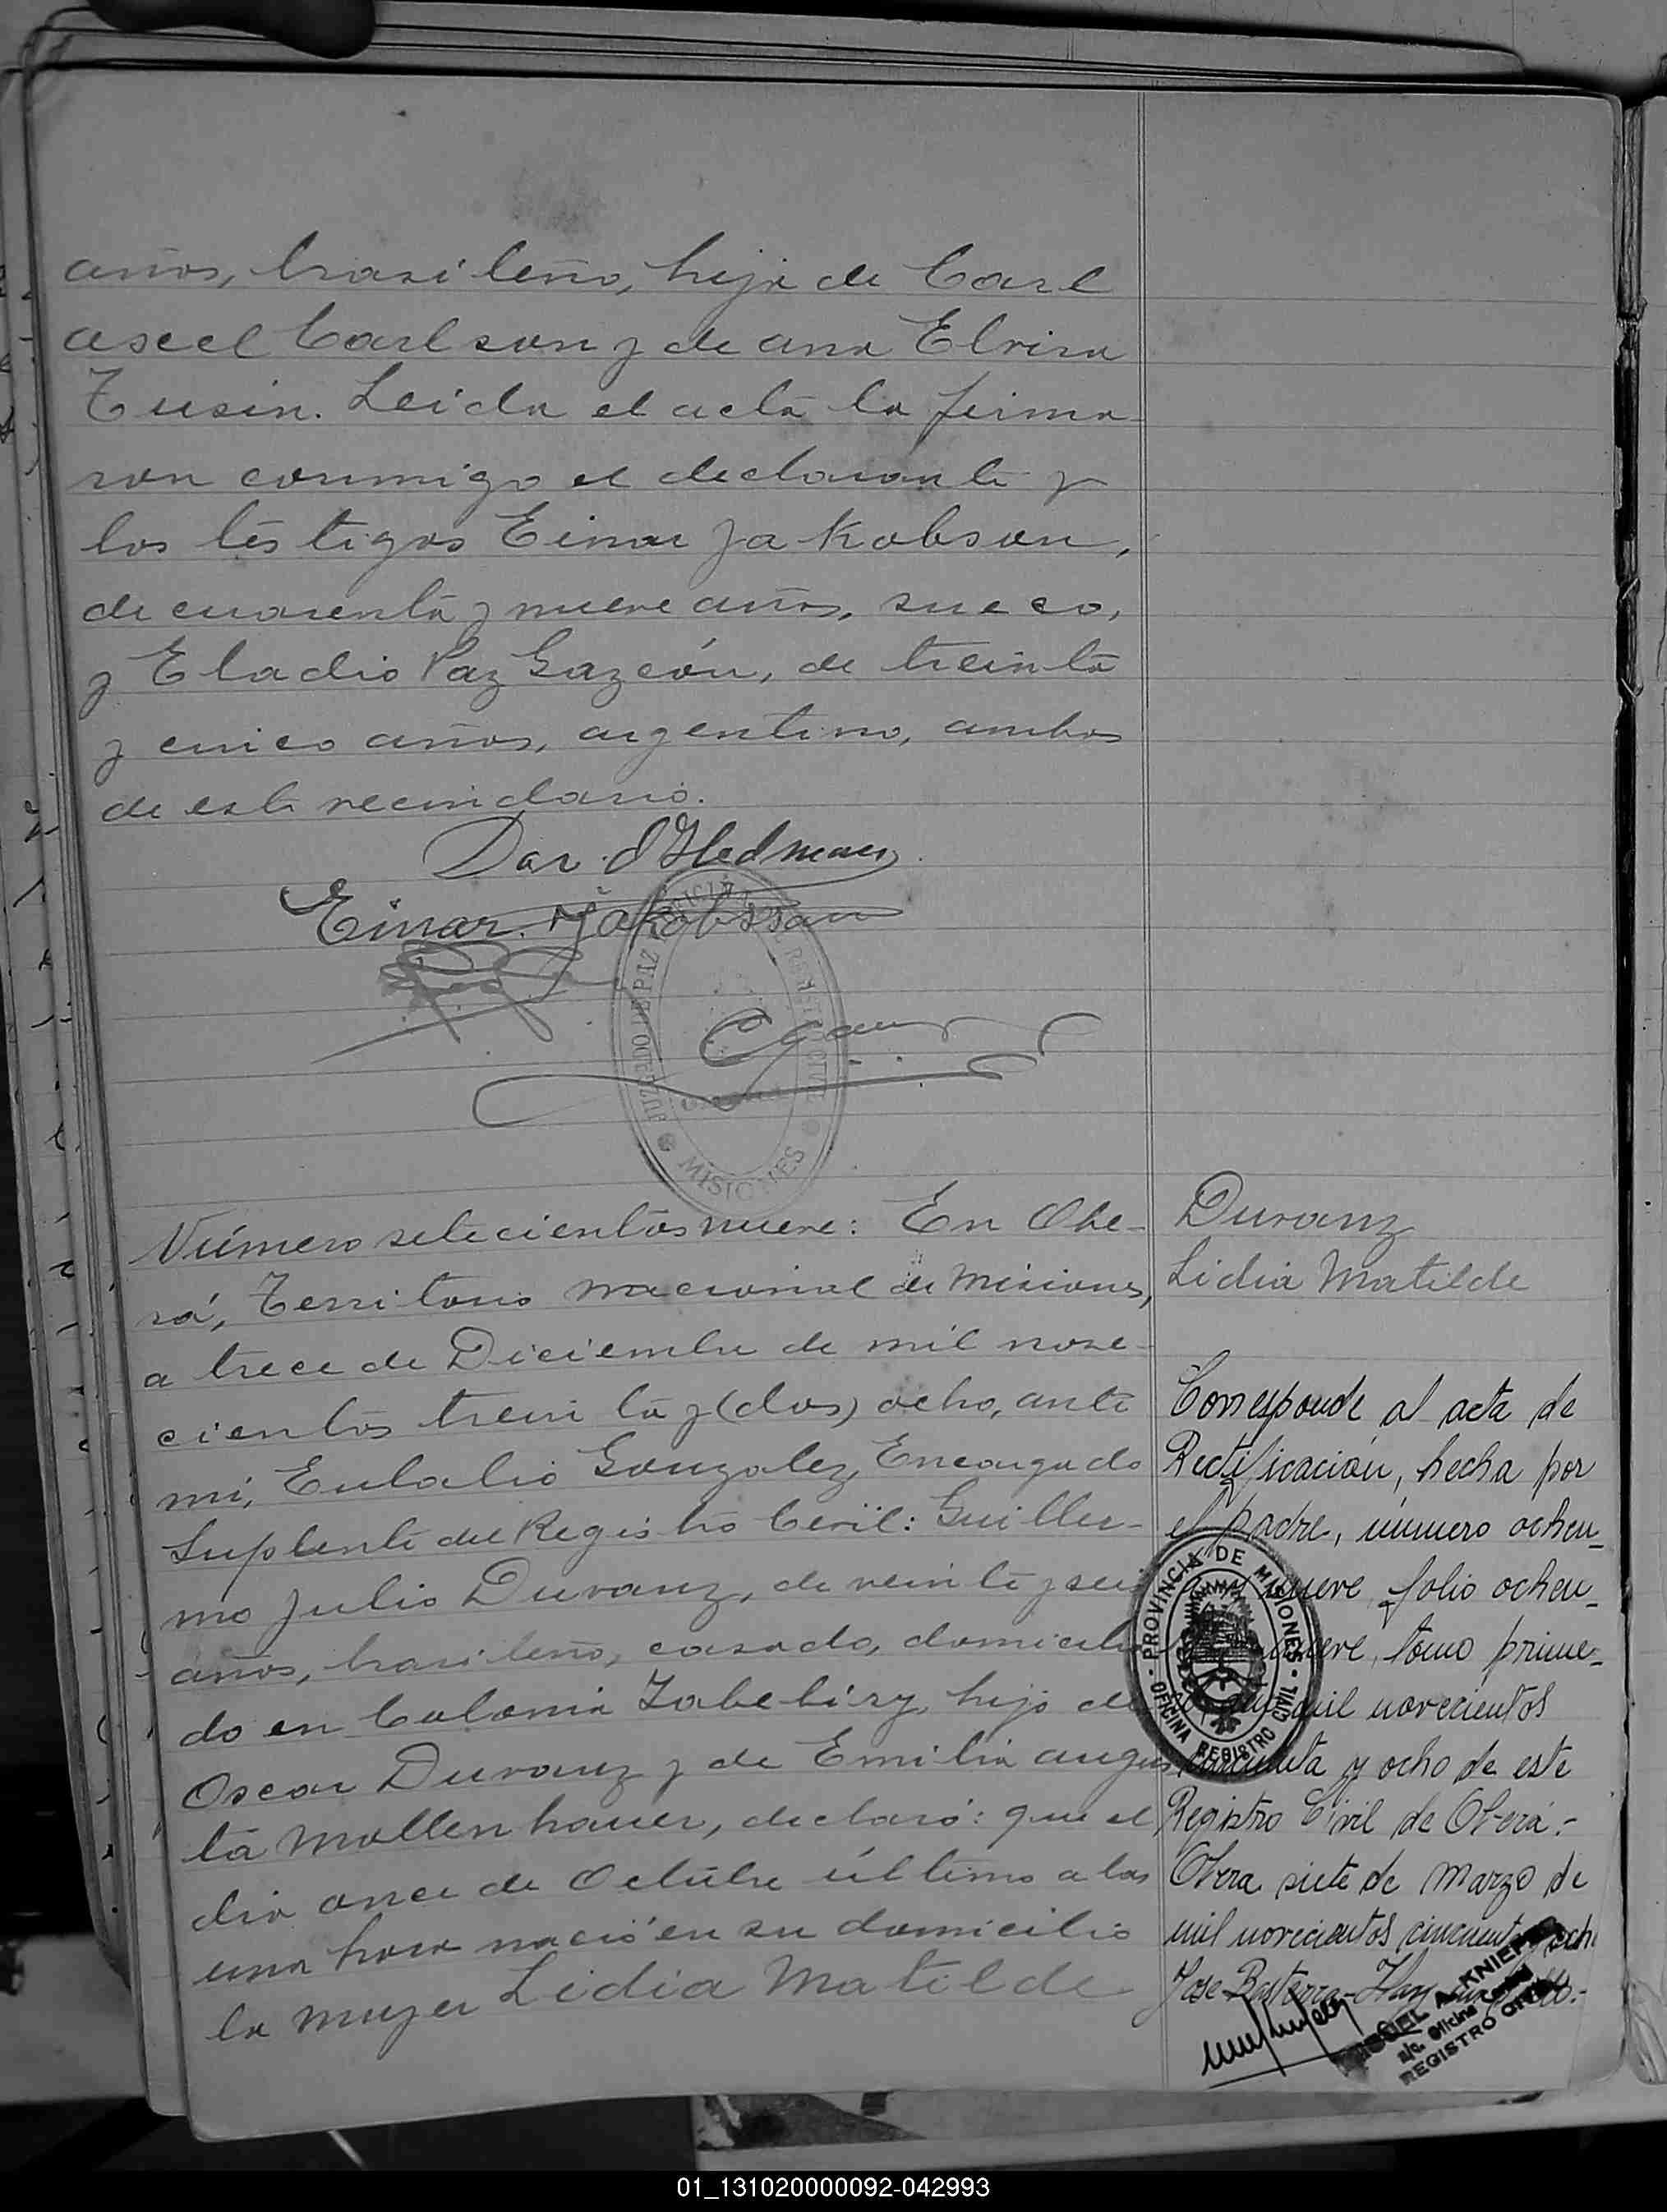 años, brasileño, hija de Carl
axel Carlson y de ana Elvira
Tusin. Leida el acta la firma-
ron conmigo el declarante y
los testigos Einar Jakobson,
de cuarenta y nueve años, sueco,
y Eladio Paz Gazcón, de treinta
y cinco años, argentino, ambos
de este vecindario.
Einar Jakobsson
JUZGADO DE PAZ
MISIONES
Número setecientos nueve: En Obe-
rá, Territorio nacional de Misiones,
a trece de Diciembre de mil nove-
cientos treinta y (dos) ocho, ante
mi, Eulalio Gonzalez, Encargado
Suplente del Registro Civil: Guiller-
mo Julio Duranz, de veinte y seis
años, brasileño, casado, domicilia
do en Colonia Yabebiry, hijo de
Oscar Duranz y de Emilia augus
ta Mollenhauer, declaró: que el
dia once de Octubre último a las
una hora nació en su domicilio
la mujer Lidia Matilde
Duranz
Lidia Matilde
Corresponde al acta de
Rectificación, hecha por
el padre, número ochen-
nueve, folio ochen-
nueve, tomo prime-
mil novecientos
cincuenta y ocho de este
Registro Civil de Oberá.-
Obera siete de Marzo de
mil novecientos cincuenta y ocho
Jose Basterra-
PROVINCIA DE MISIONES
OFICINA REGISTRO CIVIL
REGISTRO CIVIL
01_131020000092-042993